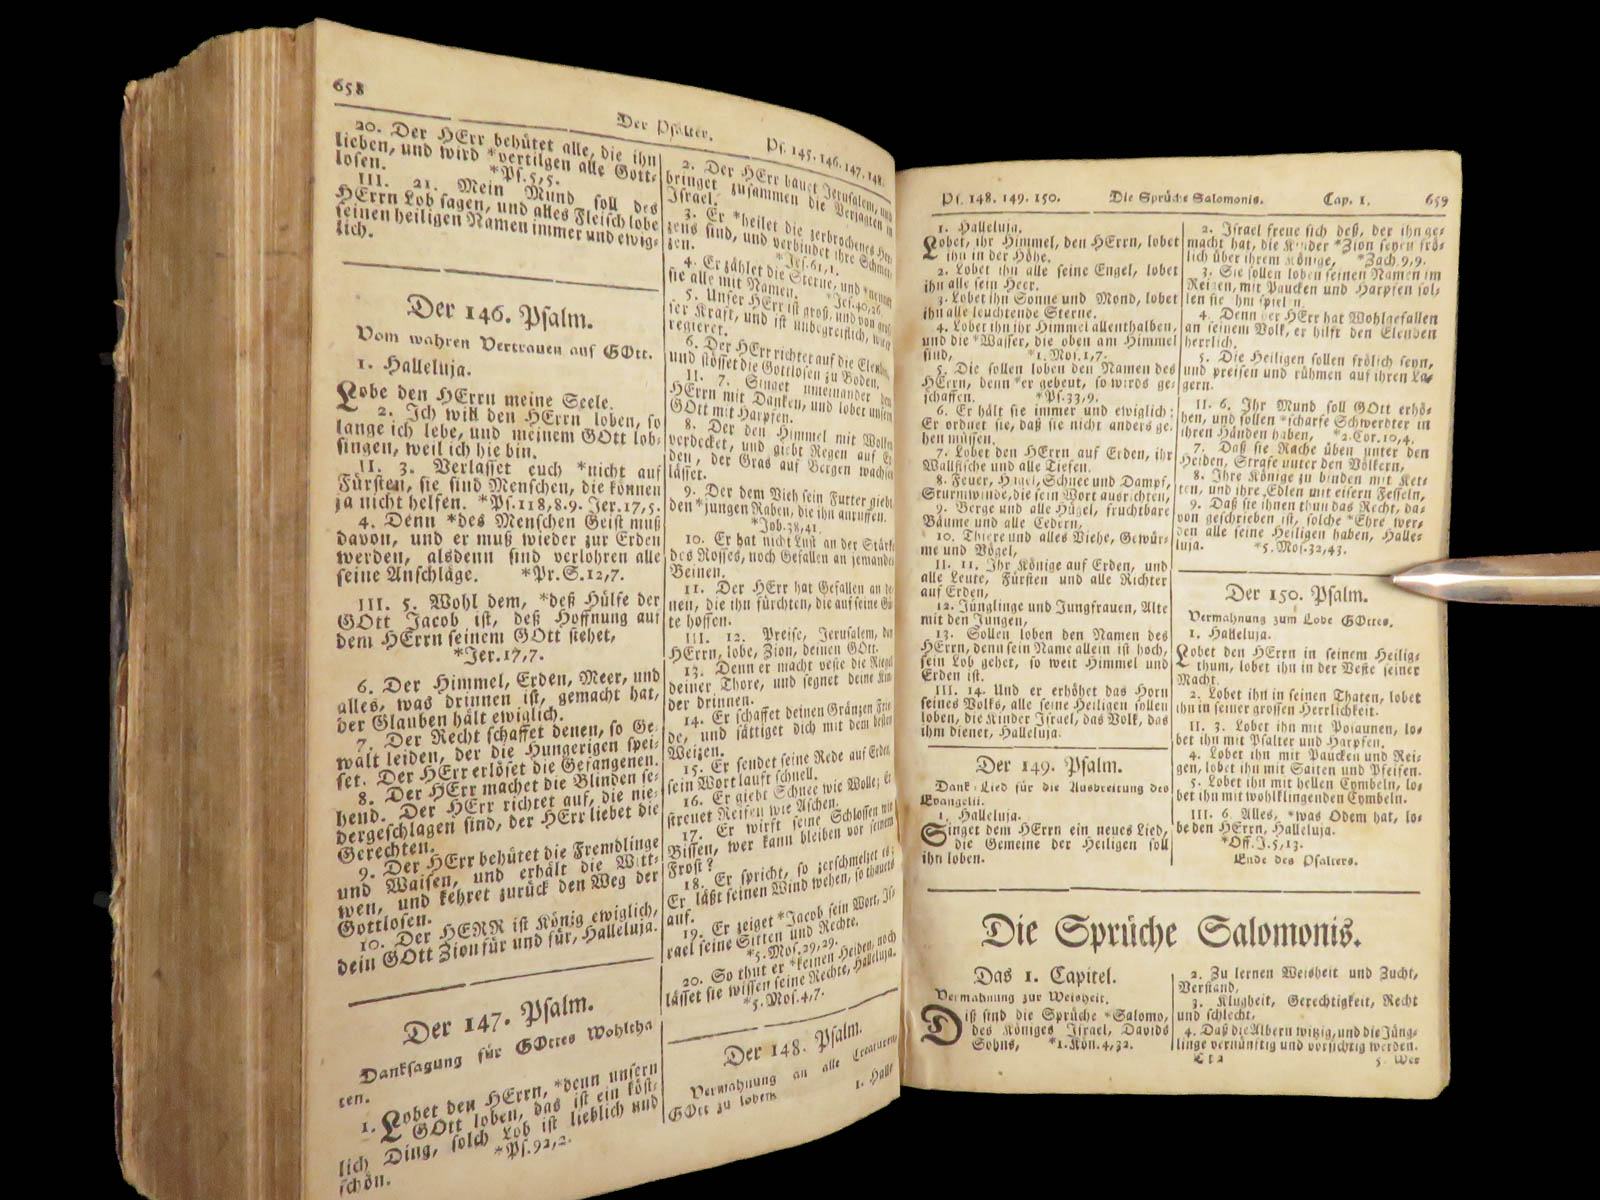 658
Der Psalter.
Ps. 145. 146. 147. 148.
20. Der HErr behütet alle, die ihn
lieben, und wird *vertilgen alle Gott-
losen. *Ps. 5,5.
III. 21. Mein Mund soll des
HErrn Lob sagen, und alles Fleisch lobe
seinen heiligen Namen immer und ewig-
lich.
Der 146. Psalm.
Vom wahren Vertrauen auf GOtt.
1. Halleluja.
Lobe den HErrn meine Seele.
2. Ich will den HErrn loben, so
lange ich lebe, und meinem GOtt lob-
singen, weil ich hie bin.
II. 3. Verlasset euch *nicht auf
Fürsten, sie sind Menschen, die können
ja nicht helfen. *Ps. 118,8.9. Jer. 17,5.
4. Denn *des Menschen Geist muß
davon, und er muß wieder zur Erden
werden, alsdenn sind verlohren alle
seine Anschläge. *Pr. S. 12,7.
III. 5. Wohl dem, *deß Hülfe der
GOtt Jacob ist, deß Hoffnung auf
dem HErrn seinem GOtt stehet,
*Jer. 17,7.
6. Der Himmel, Erden, Meer, und
alles, was drinnen ist, gemacht hat,
der Glauben hält ewiglich.
7. Der Recht schaffet denen, so Ge-
walt leiden, der die Hungerigen spei-
set. Der HErr erlöset die Gefangenen.
8. Der HErr machet die Blinden se-
hend. Der HErr richtet auf, die nie-
dergeschlagen sind, der HErr liebet die
Gerechten.
9. Der HErr behütet die Fremdlinge
und Waisen, und erhält die Witt-
wen, und kehret zurück den Weg der
Gottlosen.
10. Der HERR ist König ewiglich,
dein GOtt Zion für und für, Halleluja.
Der 147. Psalm.
Danksagung für GOttes Wohltha
ten.
1. Lobet den HErrn, *denn unsern
GOtt loben, das ist ein köst-
lich Ding, solch Lob ist lieblich und
schön. *Ps. 92,2.
2. Der HErr bauet Jerusalem, und
bringet zusammen die Verjagten in
Israel.
3. Er *heilet die zerbrochenes Her-
zens sind, und verbindet ihre Schmer-
zen. *Jes. 61,1.
4. Er zählet die Sterne, und *nennet
sie alle mit Namen. *Jes. 40,26.
5. Unser HErr ist groß, und von
ser Kraft, und ist unbegreiflich, wie er
regieret.
6. Der HErr richtet auf die Elenden,
und stösset die Gottlosen zu Boden.
II. 7. Singet umeinander dem
HErrn mit Danken, und lobet unsern
GOtt mit Harpfen.
8. Der den Himmel mit Wolken
verdecket, und giebt Regen auf Er
den, der Gras auf Bergen wachsen
lässet.
9. Der dem Vieh sein Futter giebt,
den *jungen Raben, die ihn anruffen.
*Job. 38,41.
10. Er hat nicht Lust an der Stärke
des Rosses, noch Gefallen an jemandes
Beinen.
11. Der HErr hat Gefallen an de-
nen, die ihn fürchten, die auf seine Gü
te hoffen.
III. 12. Preise, Jerusalem, den
HErrn, lobe, Zion, deinen GOtt.
13. Denn er macht veste die Riegel
deiner Thore, und segnet deine Kin-
der drinnen.
14. Er schaffet deinen Gränzen Frie-
de, und sättiget dich mit dem besten
Weizen.
15. Er sendet seine Rede auf Erden,
sein Wort lauft schnell.
16. Er giebt Schnee wie Wolle; Er
streuet Reifen wie Aschen.
17. Er wirft seine Schlossen wie
Bissen, wer kann bleiben vor seinem
Frost?
18. Er spricht, so zerschmelzet es;
Er läßt seinen Wind wehen, so thauets
auf.
19. Er zeiget *Jacob sein Wort, Is-
rael seine Sitten und Rechte.
*5. Mos. 29,29.
20. So thut er *keinen Heiden, noch
lässet sie wissen seine Rechte, Halleluja.
*5. Mos. 4,7.
Der 148. Psalm.
Vermahnung an alle Creaturen
GOtt zu loben.
1. Halle
Ps. 148. 149. 150.
Die Sprüche Salomonis.
Cap. 1.
659
1. Halleluja.
Lobet, ihr Himmel, den HErrn, lobet
ihn in der Höhe.
2. Lobet ihn alle seine Engel, lobet
ihn alle sein Heer.
3. Lobet ihn Sonne und Mond, lobet
ihn alle leuchtende Sterne.
4. Lobet ihn ihr Himmel allenthalben,
und die *Wasser, die oben am Himmel
sind, *1. Mos. 1,7.
5. Die sollen loben den Namen des
HErrn, denn *er gebeut, so wirds ge-
schaffen. *Ps. 33,9.
6. Er hält sie immer und ewiglich;
Er ordnet sie, daß sie nicht anders ge-
hen müssen.
7. Lobet den HErrn auf Erden, ihr
Wallfische und alle Tiefen.
8. Feuer, Hagel, Schnee und Dampf,
Sturmwinde, die sein Wort ausrichten,
9. Berge und alle Hügel, fruchtbare
Bäume und alle Cedern,
10. Thiere und alles Viehe, Gewür-
me und Vögel,
II. 11. Ihr Könige auf Erden, und
alle Leute, Fürsten und alle Richter
auf Erden,
12. Jünglinge und Jungfrauen, Alte
mit den Jungen,
13. Sollen loben den Namen des
HErrn, denn sein Name allein ist hoch,
sein Lob gehet, so weit Himmel und
Erden ist.
III. 14. Und er erhöhet das Horn
seines Volks, alle seine Heiligen sollen
loben, die Kinder Israel, das Volk, das
ihm dienet, Halleluja.
Der 149. Psalm.
Dank-Lied für die Ausbreitung des
Evangelii.
1. Halleluja.
Singet dem HErrn ein neues Lied,
die Gemeine der Heiligen soll
ihn loben.
2. Israel freue sich deß, der ihn ge-
macht hat, die Kinder *Zion seyen frö-
lich über ihrem Könige, *Zach. 9,9.
3. Sie sollen loben seinen Namen im
Reigen, mit Paucken und Harpfen sol-
len sie ihm spielen.
4. Denn der HErr hat Wohlgefallen
an seinem Volk, er hilft den Elenden
herrlich.
5. Die Heiligen sollen frölich seyn,
und preisen und rühmen auf ihren La-
gern.
II. 6. Ihr Mund soll GOtt erhö-
hen, und sollen *scharfe Schwerdter in
ihren Händen haben, *2. Cor. 10,4.
7. Daß sie Rache üben unter den
Heiden, Strafe unter den Völkern,
8. Ihre Könige zu binden mit Ket-
ten, und ihre Edlen mit eisern Fesseln,
9. Daß sie ihnen thun das Recht, da-
von geschrieben ist, solche *Ehre wer-
den alle seine Heiligen haben, Halle-
luja. *5. Mos. 32,43.
Der 150. Psalm.
Vermahnung zum Lobe GOttes.
1. Halleluja.
Lobet den HErrn in seinem Heilig-
thum, lobet ihn in der Veste seiner
Macht.
2. Lobet ihn in seinen Thaten, lobet
ihn in seiner grossen Herrlichkeit.
II. 3. Lobet ihn mit Posaunen, lo-
bet ihn mit Psalter und Harpfen.
4. Lobet ihn mit Paucken und Rei-
gen, lobet ihn mit Saiten und Pfeifen.
5. Lobet ihn mit hellen Cymbeln, lo-
bet ihn mit wohlklingenden Cymbeln.
III. 6. Alles, *was Odem hat, lo-
be den HErrn, Halleluja.
*Off. J. 5,13.
Ende des Psalters.
Die Sprüche Salomonis.
Das 1. Capitel.
Vermahnung zur Weisheit.
Diß sind die Sprüche *Salomo,
des Königes Israel, Davids
Sohns, *1. Kön. 4,32.
2. Zu lernen Weisheit und Zucht,
Verstand,
3. Klugheit, Gerechtigkeit, Recht
und schlecht,
4. Daß die Albern witzig, und die Jüng-
linge vernünftig und vorsichtig werden.
Tt 2
5. Wer